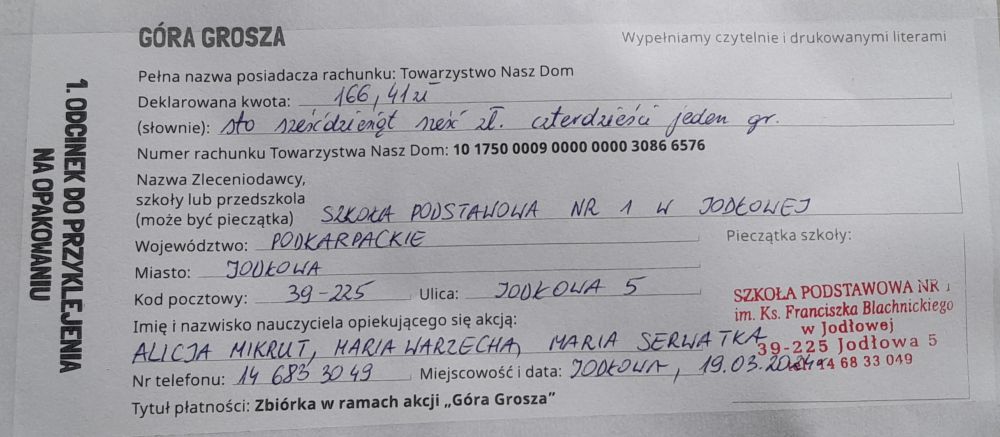 GÓRA GROSZA
Wypełniamy czytelnie i drukowanymi literami
1. ODCINEK DO PRZYKLEJENIA
NA OPAKOWANIU
Pełna nazwa posiadacza rachunku: Towarzystwo Nasz Dom
Deklarowana kwota: 166,41 zł
(słownie): sto sześćdziesiąt sześć zł. czterdzieści jeden gr.
Numer rachunku Towarzystwa Nasz Dom: 10 1750 0009 0000 0000 3086 6576
Nazwa Zleceniodawcy,
szkoły lub przedszkola
(może być pieczątka) SZKOŁA PODSTAWOWA NR 1 W JODŁOWEJ
Województwo: PODKARPACKIE
Pieczątka szkoły:
Miasto: JODŁOWA
Kod pocztowy: 39-225 Ulica: JODŁOWA 5
SZKOŁA PODSTAWOWA NR 1
im. Ks. Franciszka Blachnickiego
w Jodłowej
39-225 Jodłowa 5
tel. 14 68 33 049
Imię i nazwisko nauczyciela opiekującego się akcją:
ALICJA MIKRUT, MARIA WARZECHA, MARIA SERWATKA
Nr telefonu: 14 683 30 49 Miejscowość i data: JODŁOWA, 19.03.2024
Tytuł płatności: Zbiórka w ramach akcji „Góra Grosza”